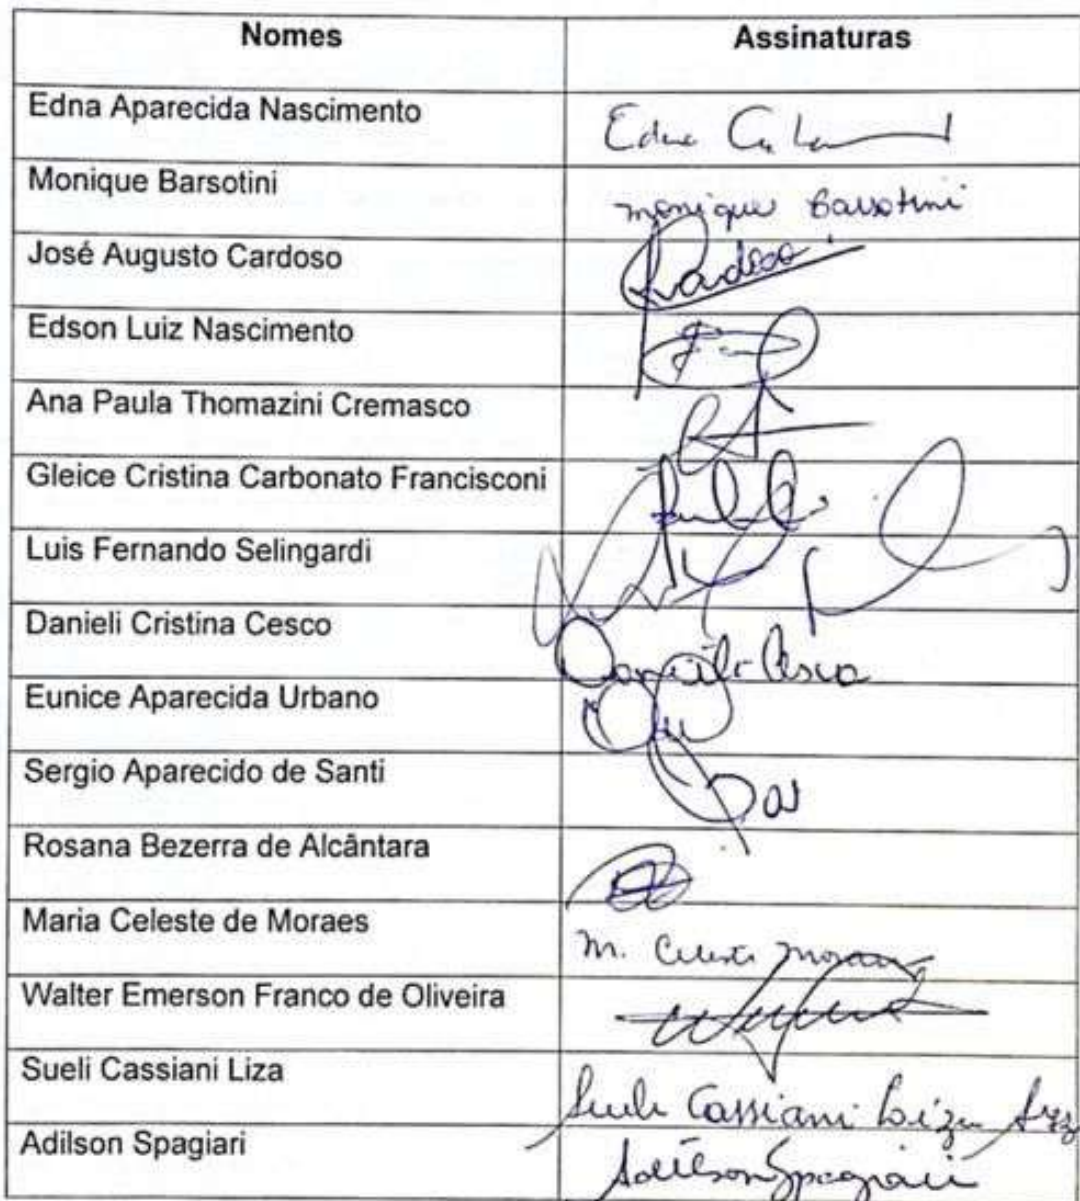 Nomes Assinaturas
Edna Aparecida Nascimento Edna
Monique Barsotini Monique Barsotini
José Augusto Cardoso Cardoso
Edson Luiz Nascimento
Ana Paula Thomazini Cremasco
Gleice Cristina Carbonato Francisconi
Luis Fernando Selingardi
Danieli Cristina Cesco Danieli Cesco
Eunice Aparecida Urbano
Sergio Aparecido de Santi
Rosana Bezerra de Alcântara
Maria Celeste de Moraes M. Celeste Moraes
Walter Emerson Franco de Oliveira
Sueli Cassiani Liza Sueli Cassiani
Adilson Spagiari Adilson Spagiari